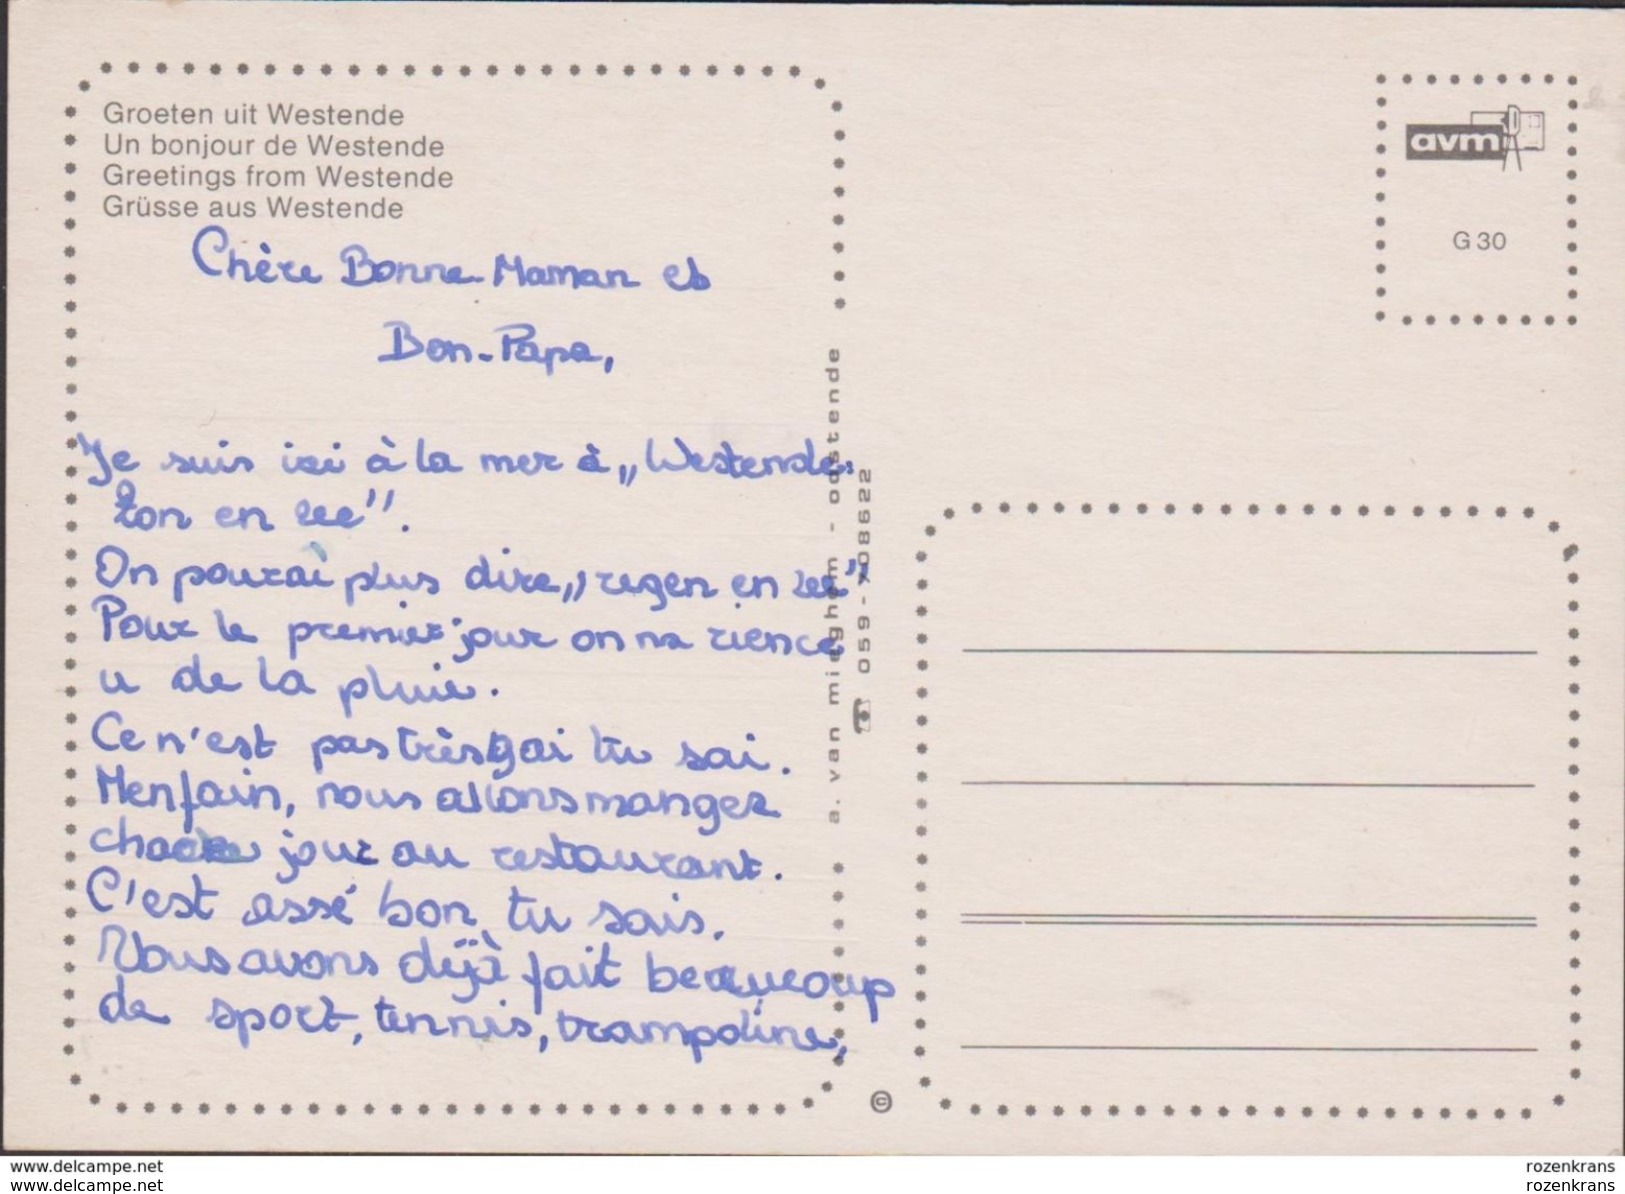 Groeten uit Westende
Un bonjour de Westende
Greetings from Westende
Grüsse aus Westende
Chère Bonne-Maman et
Bon-Papa,
Je suis ici à la mer à „Westende
Zon en zee”.
On pourai plus dire „regen en zee”
Pour le premier jour on na rien ce
u de la pluie.
Ce n'est pas très gai tu sai.
Menfain, nous allons manger
chaque jour au restaurant.
C'est assé bon, tu sais.
Nous avons déjà fait beaucoup
de sport, tennis, trampoline,
a. van mieghem - oostende
059-708622
©
avm
G 30
www.delcampe.net
www.delcampe.net
rozenkrans
rozenkrans